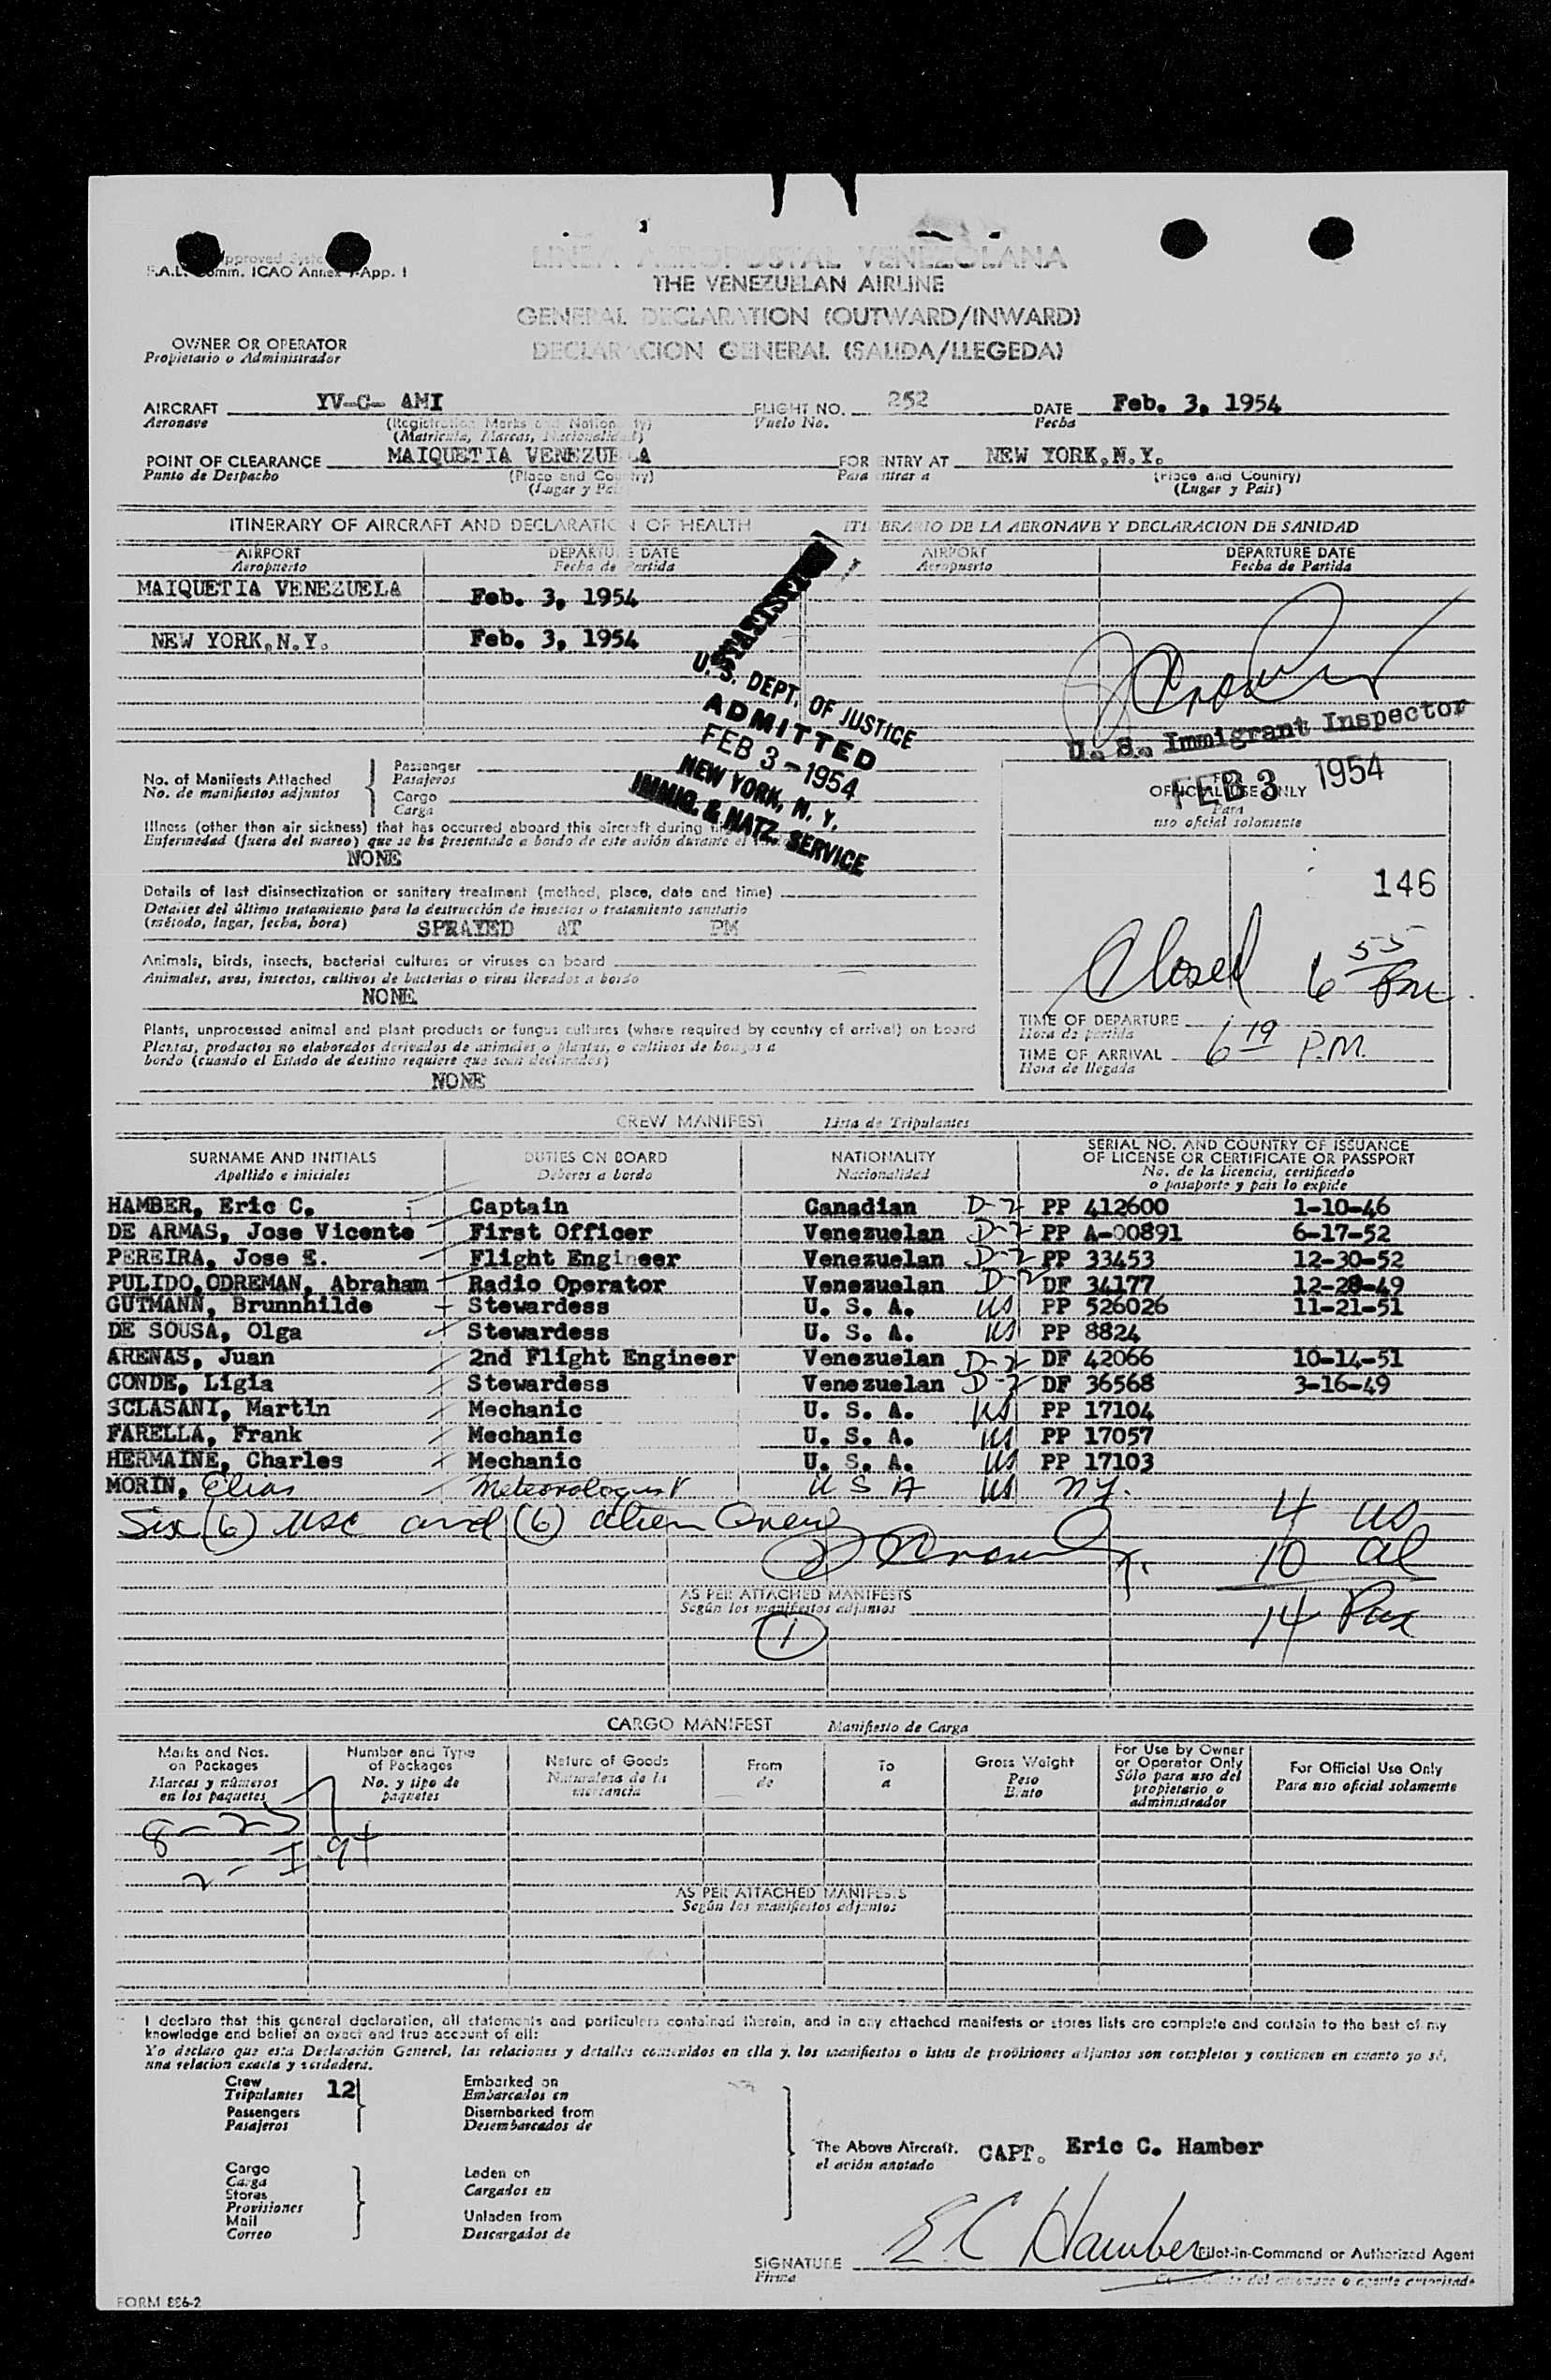 Approved System
F.A.L. Comm. ICAO Annex App. I
LINEA AEROPOSTAL VENEZOLANA
THE VENEZUELAN AIRLINE
GENERAL DECLARATION (OUTWARD/INWARD)
DECLARACION GENERAL (SALIDA/LLEGEDA)
OWNER OR OPERATOR
Propietario o Administrador
AIRCRAFT YV-C- AMI FLIGHT NO. 252 DATE Feb. 3, 1954
Aeronave (Registration Marks and Nationality) Vuelo No. Fecha
(Matricula, Marcas, Nacionalidad)
POINT OF CLEARANCE MAIQUETIA VENEZUELA FOR ENTRY AT NEW YORK,N.Y.
Punto de Despacho (Place and Country) Para entrar a (Place and Country)
(Lugar y Pais) (Lugar y Pais)
ITINERARY OF AIRCRAFT AND DECLARATION OF HEALTH ITINERARIO DE LA AERONAVE Y DECLARACION DE SANIDAD
AIRPORT DEPARTURE DATE AIRPORT DEPARTURE DATE
Aeropuerto Fecha de Partida Aeropuerto Fecha de Partida
MAIQUETIA VENEZUELA Feb. 3, 1954
NEW YORK,N.Y. Feb. 3, 1954
U.S. DEPT. OF JUSTICE
ADMITTED
FEB 3 - 1954
NEW YORK, N. Y.
IMMIG. & NATZ. SERVICE
U. S. Immigrant Inspector
FEB 3 1954
No. of Manifests Attached Passenger
No. de manifiestos adjuntos Pasajeros
Cargo
Carga
FOR
OFFICIAL USE ONLY
Para
uso oficial solamente
Illness (other than air sickness) that has occurred aboard this aircraft during
Enfermedad (fuera del mareo) que se ha presentado a bordo de este avión durante el
NONE
146
Details of last disinsectization or sanitary treatment (method, place, date and time)
Detalles del último tratamiento para la destrucción de insectos o tratamiento sanitario
(método, lugar, fecha, hora) SPRAYED AT PM
Closed 6 55 Pm.
Animals, birds, insects, bacterial cultures or viruses on board
Animales, aves, insectos, cultivos de bacterias o virus llevados a bordo
NONE
Plants, unprocessed animal and plant products or fungus cultures (where required by country of arrival) on board
Plantas, productos no elaborados derivados de animales o plantas, o cultivos de hongos a
bordo (cuando el Estado de destino requiere que sean declarados)
NONE
TIME OF DEPARTURE
Hora de partida
TIME OF ARRIVAL 6 19 P.M.
Hora de llegada
CREW MANIFEST Lista de Tripulantes
SURNAME AND INITIALS DUTIES ON BOARD NATIONALITY SERIAL NO. AND COUNTRY OF ISSUANCE
OF LICENSE OR CERTIFICATE OR PASSPORT
Apellido e iniciales Deberes a bordo Nacionalidad No. de la licencia, certificado
o pasaporte y pais lo expide
HAMBER, Eric C. Captain Canadian D-2 PP 412600 1-10-46
DE ARMAS, Jose Vicente First Officer Venezuelan D-2 PP A-00891 6-17-52
PEREIRA, Jose E. Flight Engineer Venezuelan D-2 PP 33453 12-30-52
PULIDO,ODREMAN, Abraham Radio Operator Venezuelan D-2 DF 34177 12-28-49
GUTMANN, Brunnhilde Stewardess U. S. A. US PP 526026 11-21-51
DE SOUSA, Olga Stewardess U. S. A. US PP 8824
ARENAS, Juan 2nd Flight Engineer Venezuelan D-2 DF 42066 10-14-51
CONDE, Ligia Stewardess Venezuelan D-2 DF 36568 3-16-49
SCLASANI, Martin Mechanic U. S. A. US PP 17104
FARELLA, Frank Mechanic U. S. A. US PP 17057
HERMAINE, Charles Mechanic U. S. A. US PP 17103
MORIN, Elias Meteorologist U S A US NY.
Six (6) USC and (6) alien Crew
4 US
10 al
14 Pax
AS PER ATTACHED MANIFESTS
Según los manifiestos adjuntos
1
CARGO MANIFEST Manifiesto de Carga
Marks and Nos. on Packages
Marcas y números en los paquetes
Number and Type of Packages
No. y tipo de paquetes
Nature of Goods
Naturaleza de la
From
de
To
a
Gross Weight
Peso Bruto
For Use by Owner or Operator Only
Sólo para uso del propietario o administrador
For Official Use Only
Para uso oficial solamente
AS PER ATTACHED MANIFESTS
Según los manifiestos adjuntos
I declare that this general declaration, all statements and particulars contained therein, and in any attached manifests or stores lists are complete and contain to the best of my
knowledge and belief an exact and true account of all:
Yo declaro que esta Declaración General, las relaciones y detalles contenidos en ella y, los manifiestos o listas de provisiones adjuntos son completos y contienen en cuanto yo sé,
una relacion exacta y verdadera.
Crew 12 Embarked on
Tripulantes Embarcados en
Passengers Disembarked from
Pasajeros Desembarcados de
The Above Aircraft. CAPT. Eric C. Hamber
el avión anotado
Cargo Laden on
Carga Cargados en
Stores
Provisiones
Mail Unladen from
Correo Descargados de
SIGNATURE E C Hamber Pilot-in-Command or Authorized Agent
Firma
FORM 886-2